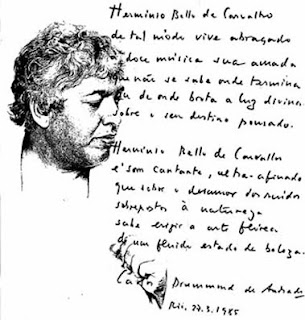 Hermínio Bello de Carvalho
de tal modo vive abraçado
à doce música sua amada
que não se sabe onde termina
ou de onde brota a luz divina
sobre o seu destino pousado.
Hermínio Bello de Carvalho
é som cantante, ultra-afinado
que sobre o desamor dos ruídos
sobrepostos à natureza
sabe erigir a arte
de um fluido estado de beleza.
Carlos Drummond de Andrade
Rio, 27.3.1985